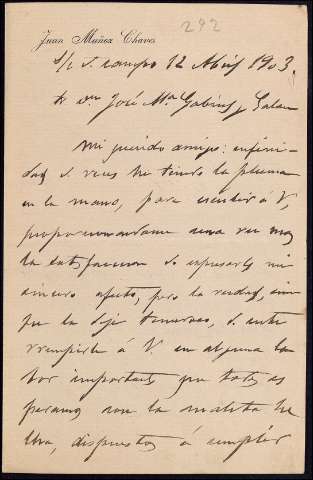 292
Juan Muñoz Chaves
S/c S. campo 12 Abril 1903.
Sr. Dn José Ma Gabriel y Galan
Mi querido amigo: infini-
dad de veces he tenido la pluma
en la mano, para escribir á V,
proporcionandome una vez mas
la satisfaccion de expresarle mi
sincero afecto, pero la verdad, siem
pre la dejé temeroso, de inte
rrumpirle á V. en alguna la
bor importante que todos es
peramos con la maldita he
bra, dispuestos á cumplir